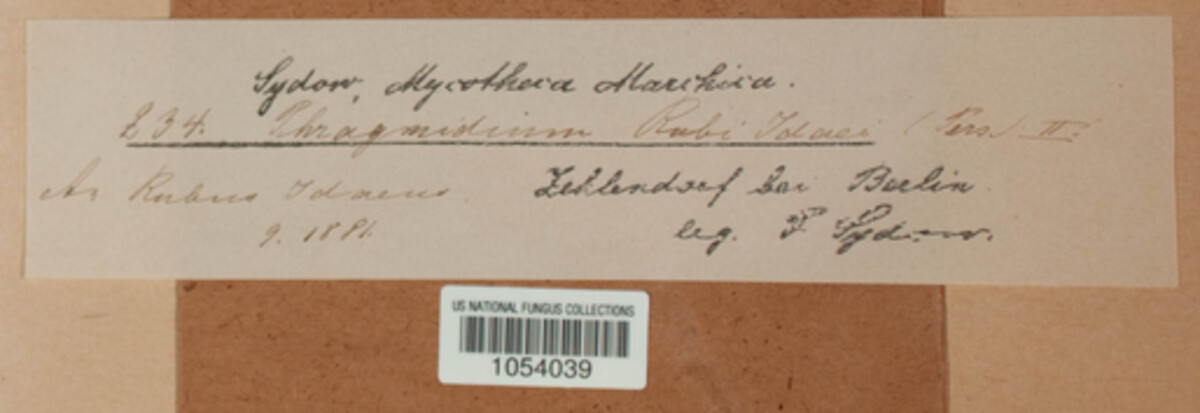 Sydow, Mycotheca Marchica.
234. Phragmidium Rubi Idaei (Pers.) II.
An Rubus Idaeus. Zehlendorf bei Berlin
9. 1881. leg. P. Sydow.
US NATIONAL FUNGUS COLLECTIONS
1054039